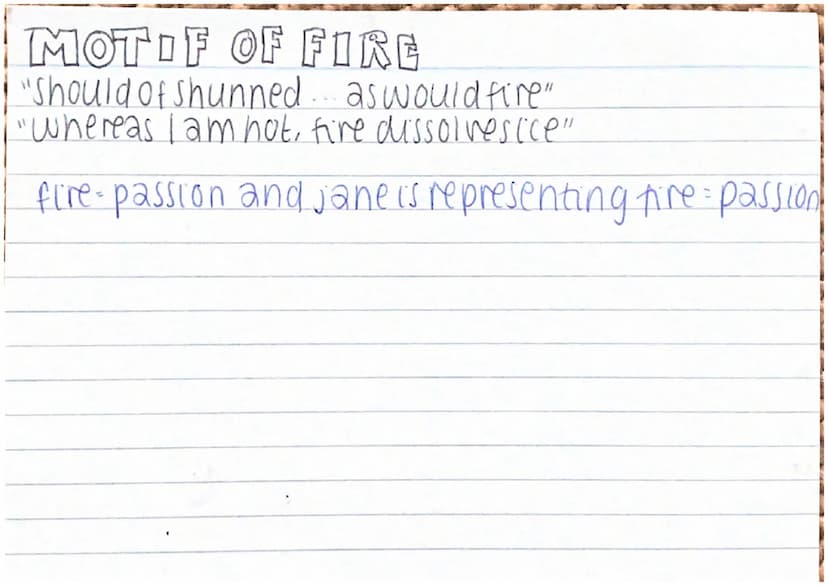 MOTIF OF FIRE
"should of shunned ... as would fire"
"whereas I am hot, fire dissolves ice"
fire = passion and jane is representing fire = passion